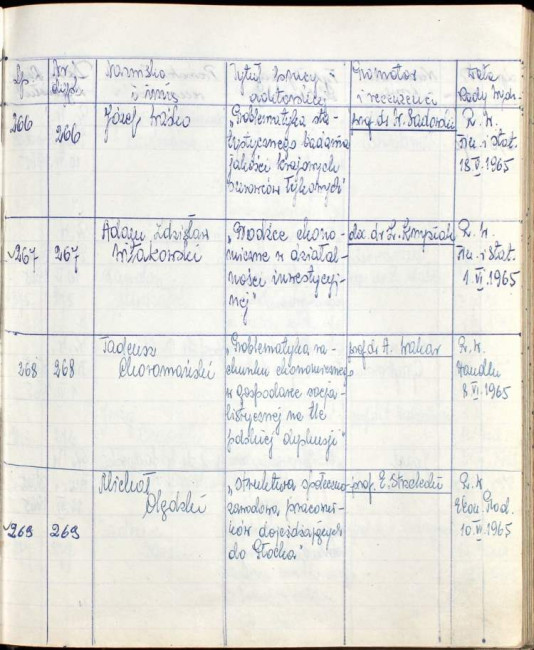 Lp.
Nr dypl.
Nazwisko i imię
Tytuł pracy doktorskiej
Promotor i recenzenci
Data Rady Wydz.
266
266
Józef
"Problematyka sta-
tystycznego badania
jakości krajowych
surowców łykowych"
prof. dr W. Sadowski
R. W.
Fin. i Stat.
18.V.1965
267
267
Adam Zdzisław
Witakowski
"Bodźce ekono-
miczne w działal-
ności inwestycyj-
nej"
doc. dr Z. Knyziak
R. W.
Fin. i Stat.
1.VI.1965
268
268
Tadeusz
Choromański
"Problematyka ra-
chunku ekonomicznego
w gospodarce socja-
listycznej na tle
polskiej dyskusji"
prof. dr A. Wakar
R. W.
Handlu
8.VI.1965
269
269
Michał
Olędzki
"Struktura społeczno
zawodowa pracowni-
ków dojeżdżających
do Płocka"
prof. E. Strzelecki
R. W.
Ekon. Prod.
10.VI.1965